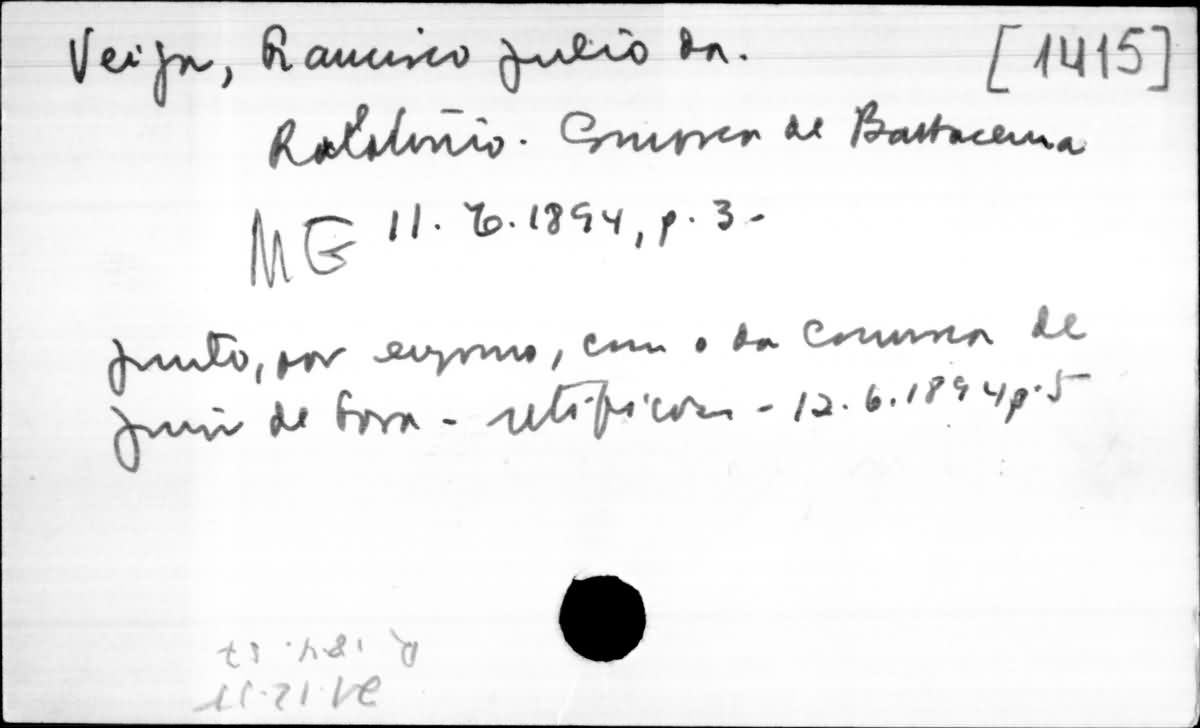 Veiga, Francisco Julio da. [1415]
Relatório. Comarca de Barbacena
MG 11.6.1894, p. 3-
junto, por engano, com o da Comarca de
Juiz de Fora - retificação - 12.6.1894 p.5